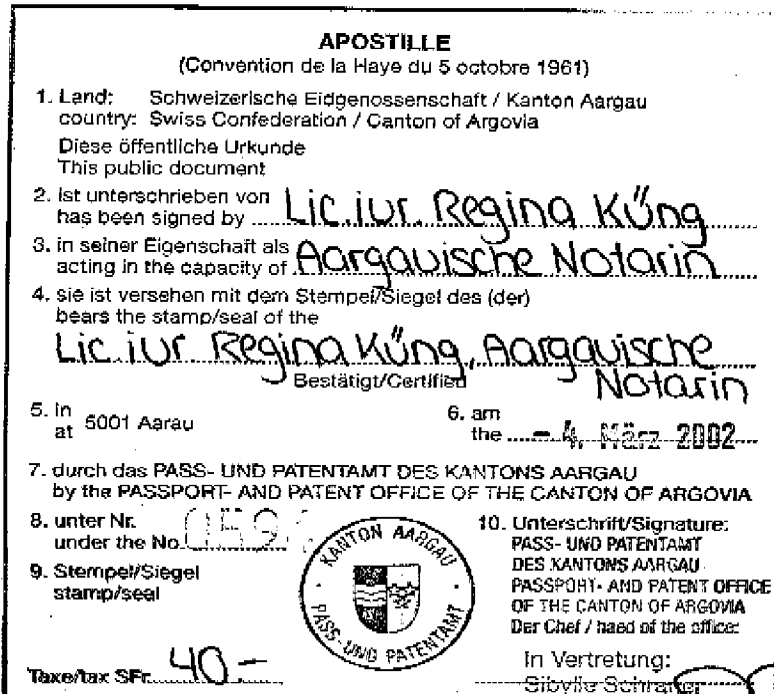 APOSTILLE
(Convention de la Haye du 5 octobre 1961)
1. Land: Schweizerische Eidgenossenschaft / Kanton Aargau
country: Swiss Confederation / Canton of Argovia
Diese öffentliche Urkunde
This public document
2. ist unterschrieben von
has been signed by Lic. iur. Regina Küng
3. in seiner Eigenschaft als
acting in the capacity of Aargauische Notarin
4. sie ist versehen mit dem Stempel/Siegel des (der)
bears the stamp/seal of the
Lic. iur. Regina Küng, Aargauische
Notarin
Bestätigt/Certified
5. in
at 5001 Aarau
6. am
the – 4. März 2002
7. durch das PASS- UND PATENTAMT DES KANTONS AARGAU
by the PASSPORT- AND PATENT OFFICE OF THE CANTON OF ARGOVIA
8. unter Nr.
under the No.
9. Stempel/Siegel
stamp/seal
KANTON AARGAU
PASS- UND PATENTAMT
10. Unterschrift/Signature:
PASS- UND PATENTAMT
DES KANTONS AARGAU
PASSPORT- AND PATENT OFFICE
OF THE CANTON OF ARGOVIA
Der Chef / haed of the office:
In Vertretung:
Sibylle
Taxe/tax SFr. 40.-